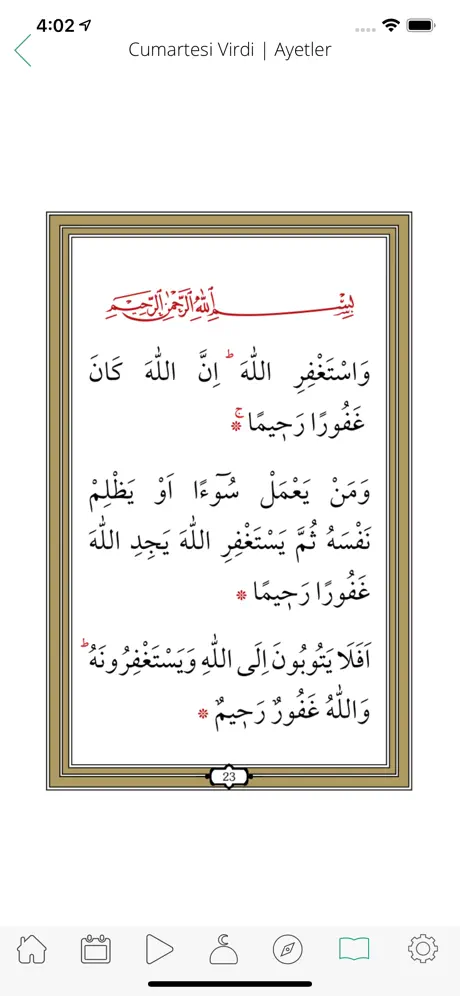 4:02
Cumartesi Virdi | Ayetler
بِسْمِ اللهِ الرَّحْمٰنِ الرَّحِيمِ
وَاسْتَغْفِرِ اللهَ ؕ اِنَّ اللهَ كَانَ
غَفُورًا رَحٖيمًا ۚ
وَمَنْ يَعْمَلْ سُٓوءًا اَوْ يَظْلِمْ
نَفْسَهُ ثُمَّ يَسْتَغْفِرِ اللهَ يَجِدِ اللهَ
غَفُورًا رَحٖيمًا
اَفَلَا يَتُوبُونَ اِلَى اللهِ وَيَسْتَغْفِرُونَهُ ؕ
وَاللهُ غَفُورٌ رَحٖيمٌ
23